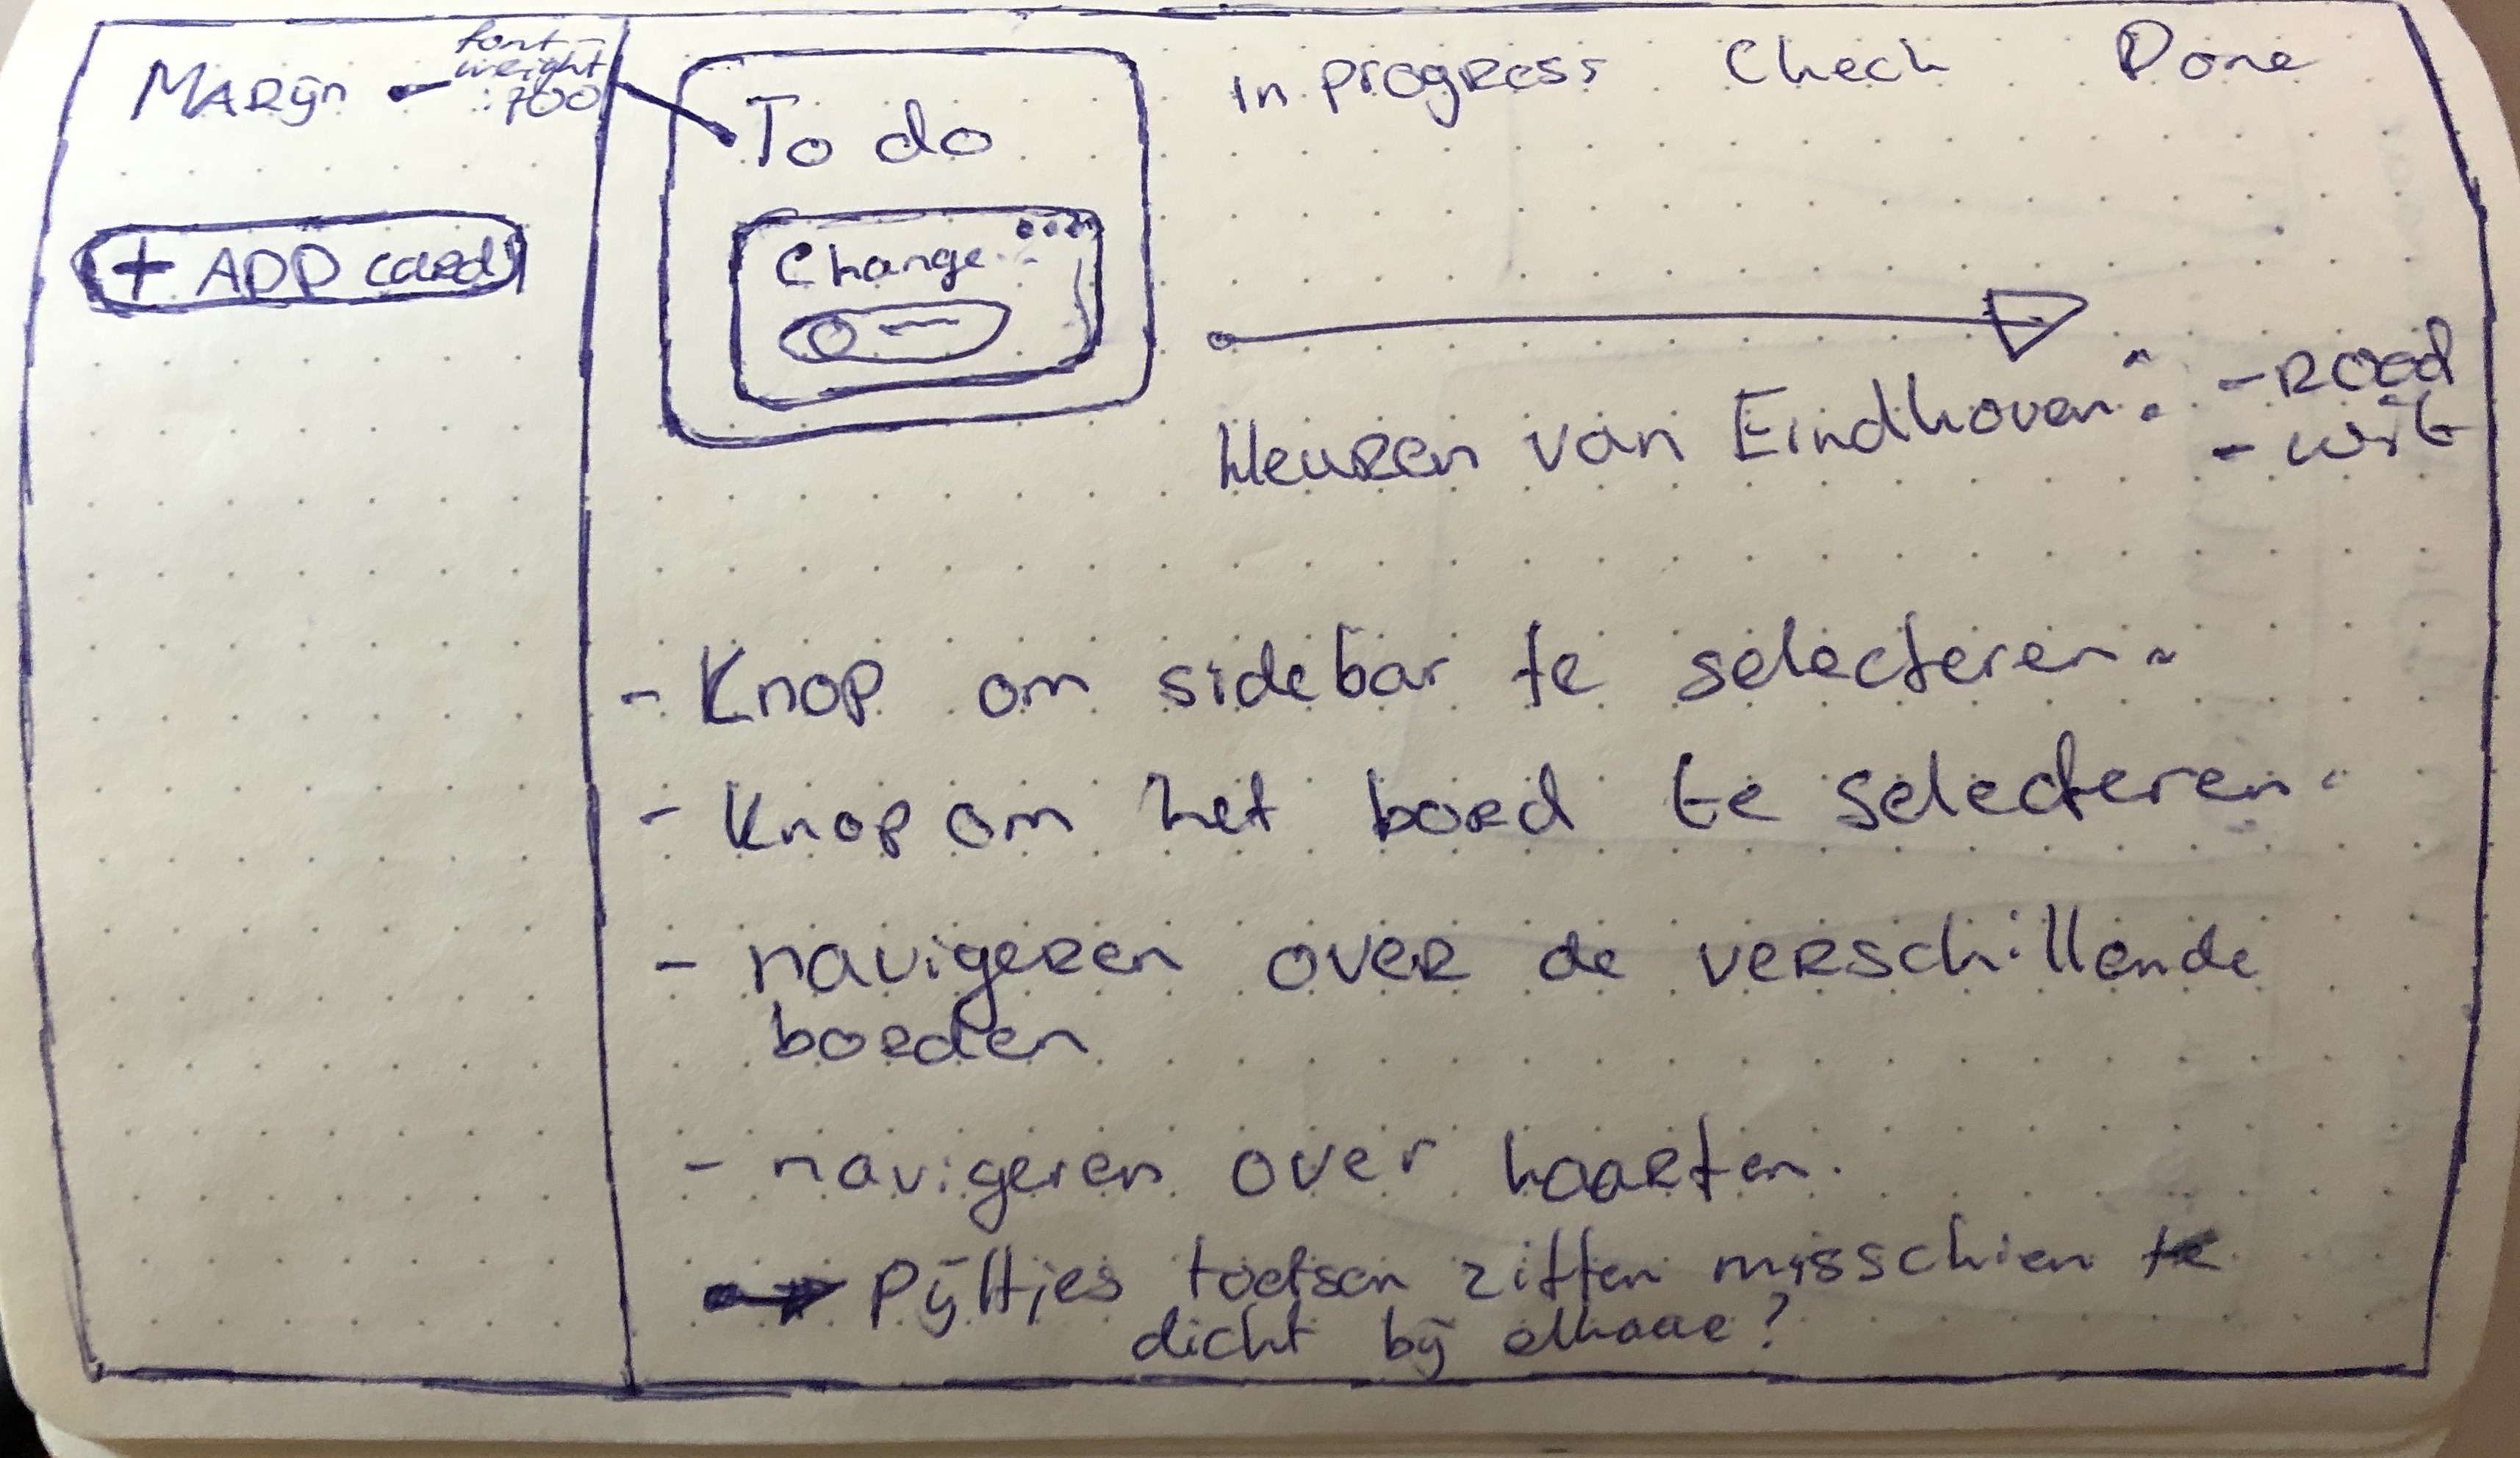 MARijn
font-
weight
:700
+ ADD card
To do
Change
in progress
Check
Done
kleuren van Eindhoven:
- Rood
- wit
- Knop om sidebar te selecteren.
- Knop om het bord te selecteren.
- navigeren over de verschillende
borden
- navigeren over kaarten.
Pijltjes toetsen zitten misschien te
dicht bij elkaar?